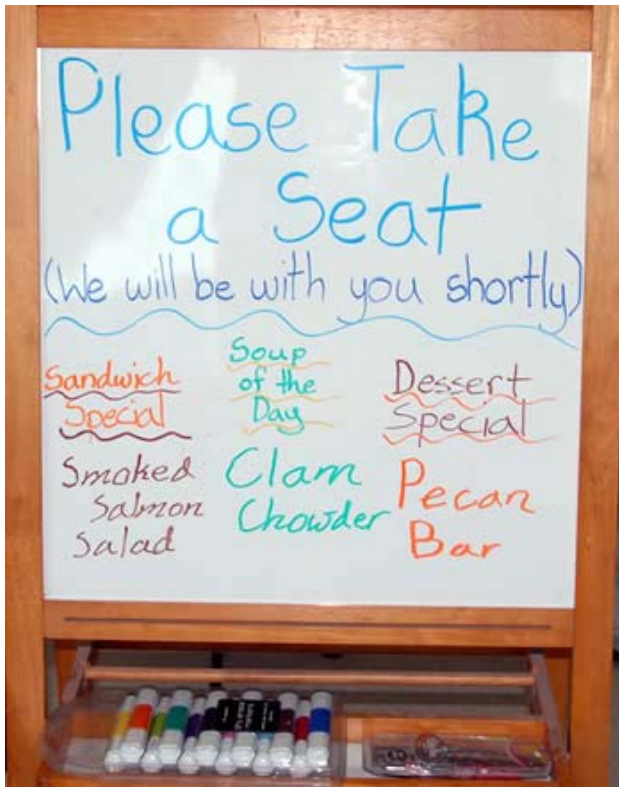 Please Take
a Seat
(We will be with you shortly)
Sandwich
Special
Smoked
Salmon
Salad
Soup
of the
Day
Clam
Chowder
Dessert
Special
Pecan
Bar